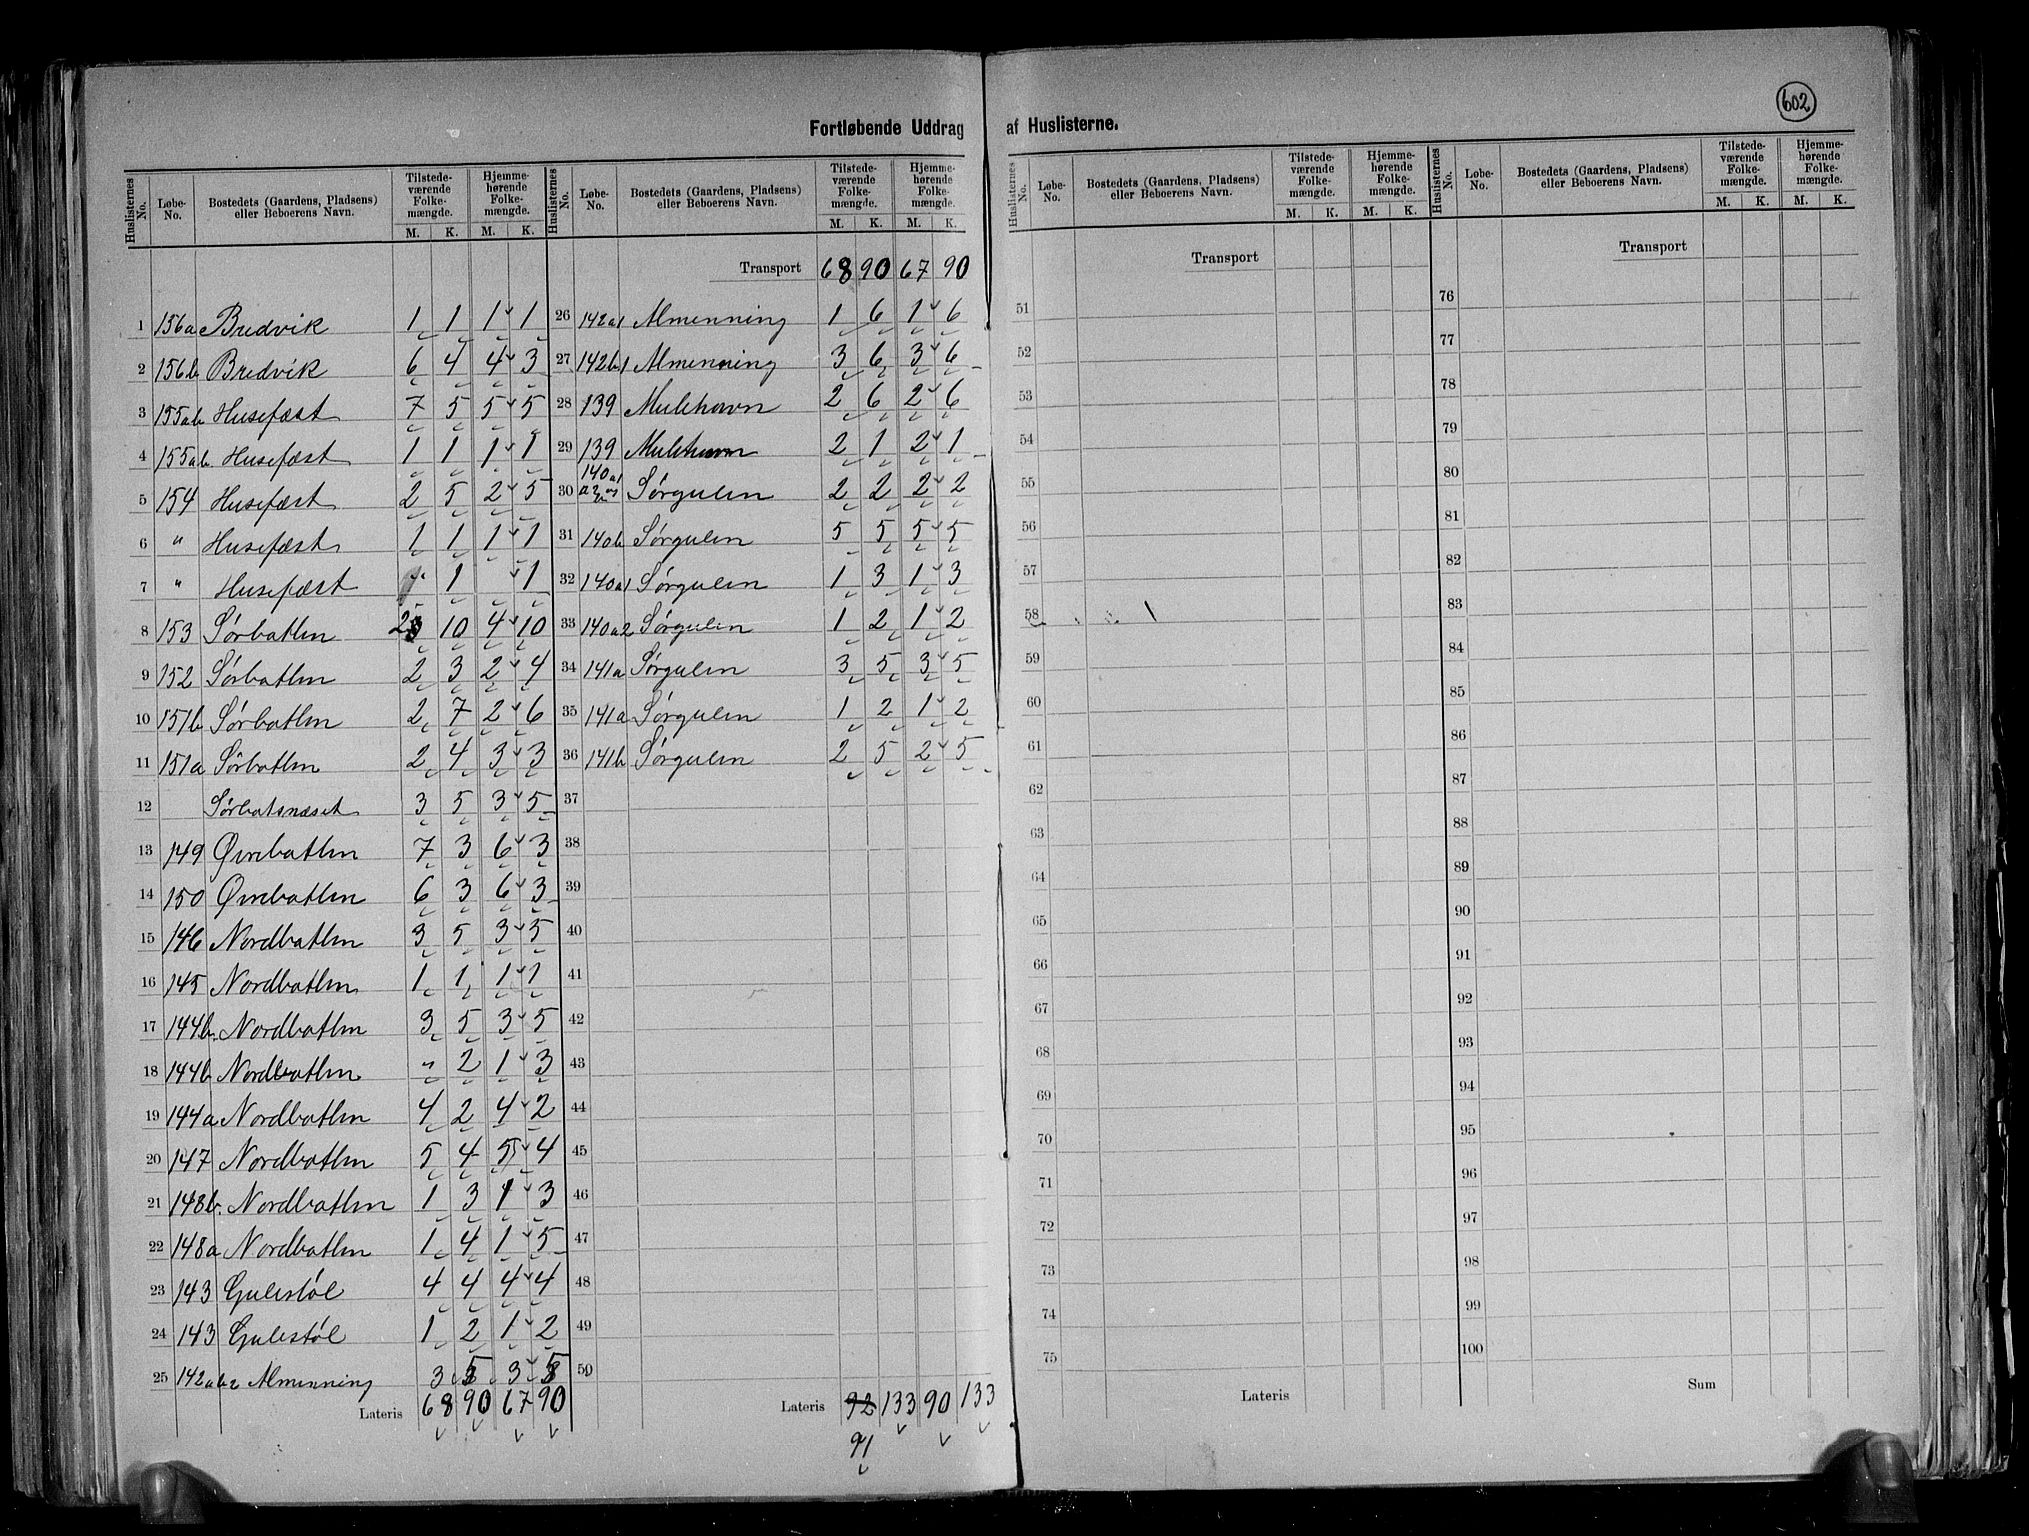 602
Fortløbende Uddrag af Huslisterne.
Huslisternes No. Løbe-No. Bostedets (Gaardens, Pladsens) eller Beboerens Navn. Tilstede-værende Folke-mængde. M. K. Hjemme-hørende Folke-mængde. M. K.
Huslisternes No. Løbe-No. Bostedets (Gaardens, Pladsens) eller Beboerens Navn. Tilstede-værende Folke-mængde. M. K. Hjemme-hørende Folke-mængde. M. K.
1 156a Bredvik 1 1 1 1
2 156b Bredvik 6 4 4 3
3 155ab Husefæst 7 5 5 5
4 155ab. Husefæst 1 1 1 1
5 154 Husefæst 2 5 2 5
6 " Husefæst 1 1 1 1
7 " Husefæst 1 1
8 153 Sørbatlen 2 10 4 10
9 152 Sørbatlen 2 3 2 4
10 151b Sørbatlen 2 7 2 6
11 151a Sørbatlen 2 4 3 3
12 Sørbatsnæset 3 5 3 5
13 149 Øvrebatlen 7 3 6 3
14 150 Øvrebatlen 6 3 6 3
15 146 Nordbatlen 3 5 3 5
16 145 Nordbatlen 1 1 1 1
17 144b. Nordbatlen 3 5 3 5
18 144b Nordbatlen " 2 1 3
19 144a Nordbatlen 4 2 4 2
20 147 Nordbatlen 5 4 5 4
21 148b. Nordbatlen 1 3 1 3
22 148a Nordbatlen 1 4 1 5
23 143 Gulestøl 4 4 4 4
24 143 Gulestøl 1 2 1 2
25 142ab2 Almenning 3 5 3 5
Lateris 68 90 67 90
Transport 68 90 67 90
26 142a1 Almenning 1 6 1 6
27 142b1 Almenning 3 6 3 6
28 139 Mulehavn 2 6 2 6
29 139 Mulehavn 2 1 2 1
30 140a1 Sørgulen 2 2 2 2
31 140b Sørgulen 5 5 5 5
32 140a1 Sørgulen 1 3 1 3
33 140a2 Sørgulen 1 2 1 2
34 141a Sørgulen 3 5 3 5
35 141a Sørgulen 1 2 1 2
36 141b Sørgulen 2 5 2 5
37
38
39
40
41
42
43
44
45
46
47
48
49
50
Lateris 92 133 90 133
91
Huslisternes No. Løbe-No. Bostedets (Gaardens, Pladsens) eller Beboerens Navn. Tilstede-værende Folke-mængde. M. K. Hjemme-hørende Folke-mængde. M. K.
Transport
51
52
53
54
55
56
57
58
59
60
61
62
63
64
65
66
67
68
69
70
71
72
73
74
75
Lateris
Huslisternes No. Løbe-No. Bostedets (Gaardens, Pladsens) eller Beboerens Navn. Tilstede-værende Folke-mængde. M. K. Hjemme-hørende Folke-mængde. M. K.
Transport
76
77
78
79
80
81
82
83
84
85
86
87
88
89
90
91
92
93
94
95
96
97
98
99
100
Sum